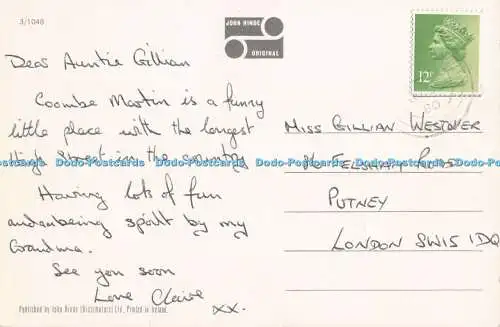 3/1048
JOHN HINDE
ORIGINAL
12P
Dear Auntie Gillian
Coombe Martin is a funny
little place with the longest
High Street in the country
Having lots of fun
and being spoilt by my
Grandma.
See you soon
Love Claire
xx.
MISS GILLIAN WESTOVER
FELSHAM ROAD
PUTNEY
LONDON SW15 1DQ
Dodo-Postcards Dodo-Postcards Dodo-Postcards Dodo-Postcards Dodo-Postcards
Published by John Hinde (Distributors) Ltd., Printed in Ireland.